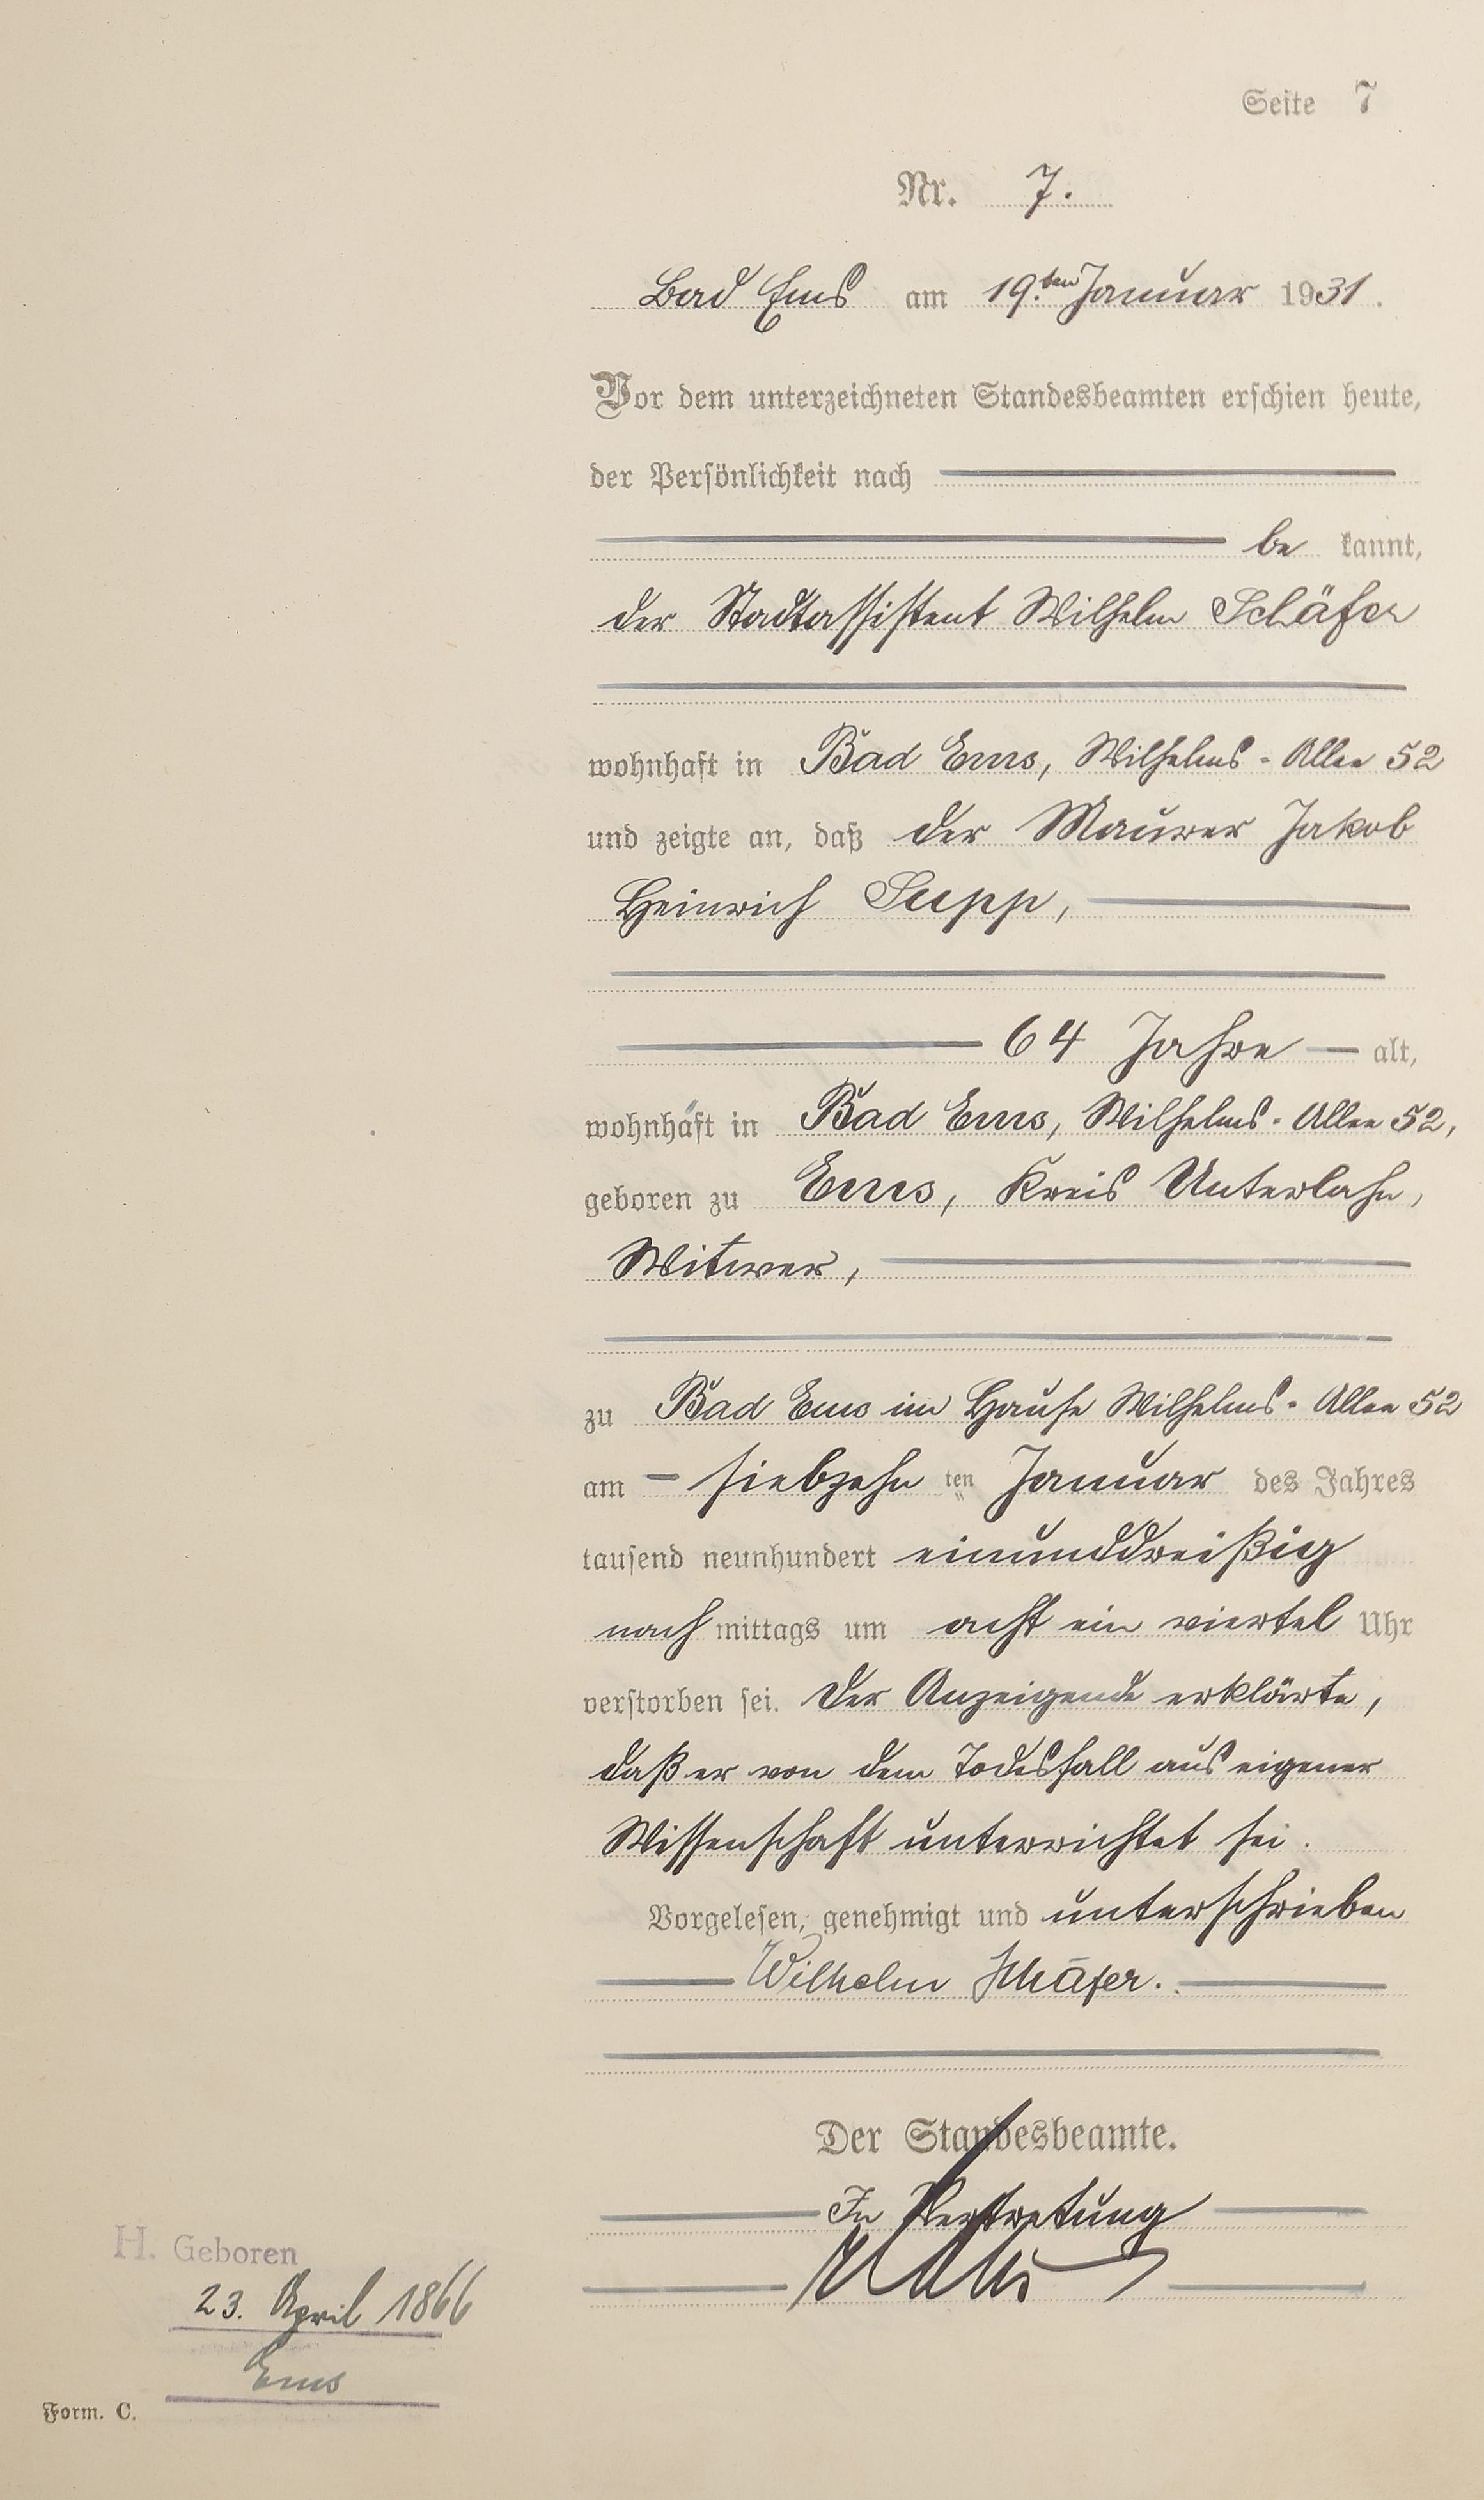 Seite 7
Nr. 7.
Bad Ems am 19.ten Januar 1931.
Vor dem unterzeichneten Standesbeamten erschien heute,
der Persönlichkeit nach
be kannt,
der Stadtassistent Wilhelm Schäfer
wohnhaft in Bad Ems, Wilhelms-Allee 52
und zeigte an, daß der Maurer Jakob
Heinrich Supp,
64 Jahre alt,
wohnhaft in Bad Ems, Wilhelms-Allee 52,
geboren zu Ems, Kreis Unterlahn,
Witwer,
zu Bad Ems im Hause Wilhelms-Allee 52
am siebzehn ten Januar des Jahres
tausend neunhundert einunddreißig
nach mittags um acht ein viertel Uhr
verstorben sei. Der Anzeigende erklärte,
daß er von dem Todesfall aus eigener
Wissenschaft unterrichtet sei.
Vorgelesen, genehmigt und unterschrieben
Wilhelm Schäfer.
Der Standesbeamte.
In Vertretung
H. Geboren
23. April 1866
Ems
Form. C.